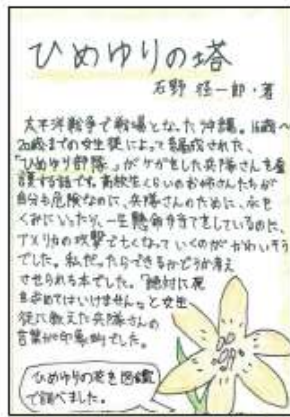 ひめゆりの塔
石野 径一郎・著
太平洋戦争で戦場となった沖縄。16歳〜
20歳までの女生徒によって編成された、
「ひめゆり部隊」がケガをした兵隊さんを看
護する話です。高校生くらいのお姉さんたちが
自分も危険なのに、兵隊さんのために、水を
くみにいったり、一生懸命手当てをしているのに、
アメリカの攻撃で亡くなっていくのがかわいそう
でした。私だったらできるかどうか考え
させられる本でした。「絶対に死
を求めてはいけません」と女生
徒に教えた兵隊さんの
言葉が印象的でした。
ひめゆりの花を図鑑
で調べました。